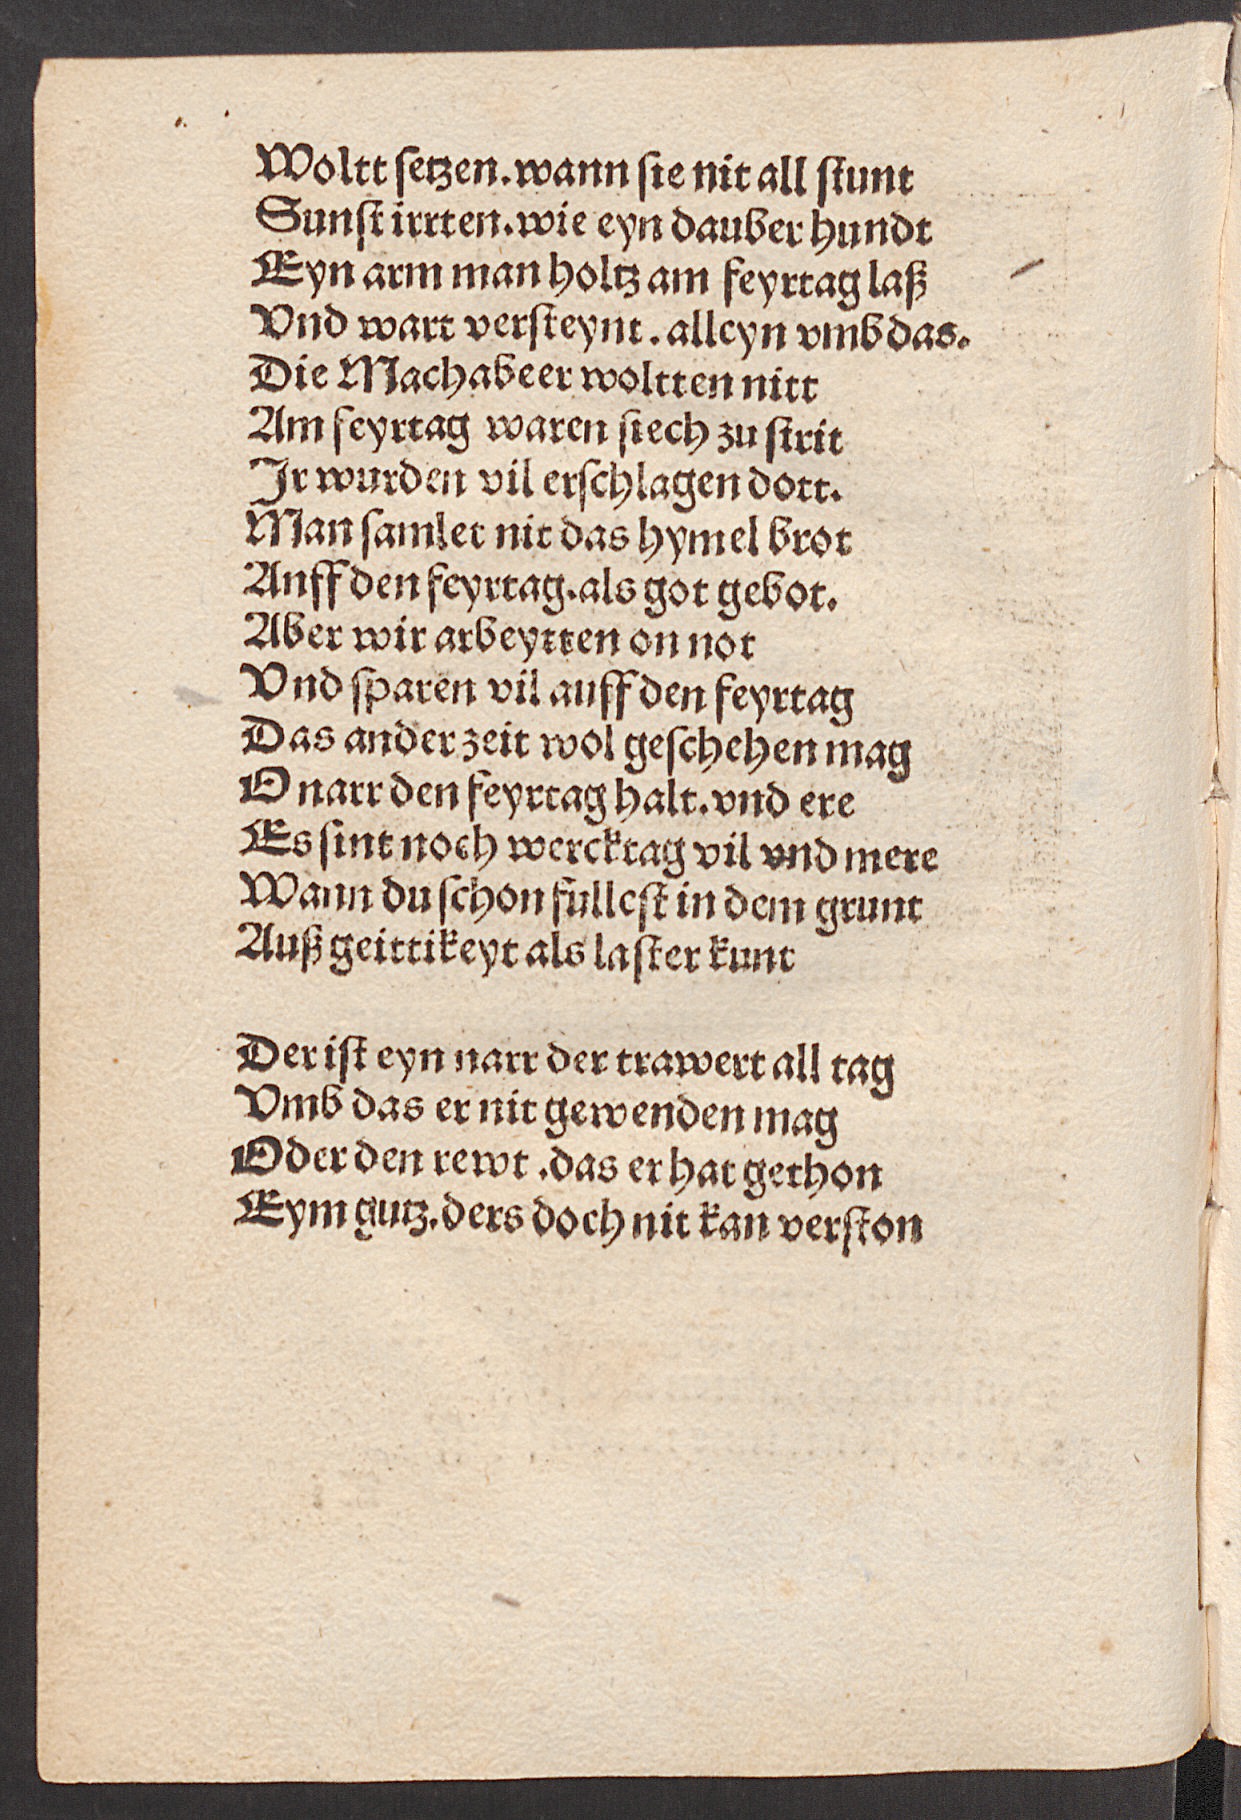 Woltt ſetzen. wann ſie nit all ſtunt
Sunſt irrten. wie eyn dauber hundt
Eyn arm man holtz am feyrtag laß
Vnd wart verſteynt. alleyn vmb das.
Die Machabeer woltten nitt
Am feyrtag waren ſtech zu ſtrit
Jr wurden vil erſchlagen dott.
Man ſamlet nit das hymel brot
Anff den feyrtag. als got gebot.
Aber wir arbeytten on not
Vnd ſparen vil auff den feyrtag
Das ander zeit wol geſchehen mag
O narr den feyrtag halt. vnd ere
Es ſint noch wercktag vil vnd mere
Wann du ſchon fulleſt in dem grunt
Auß geittikeyt als laſter kunt

Der iſt eyn narr der trawert all tag
Vmb das er nit gewenden mag
Oder den rewt. das er hat gethon
Eym gutz. ders doch nit kan verſton